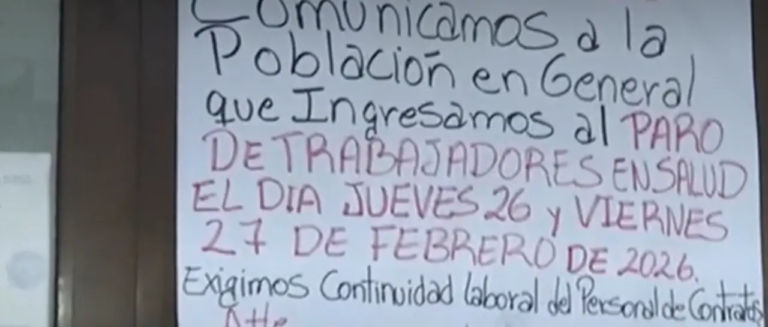 Comunicamos a la
Población en General
que Ingresamos al PARO
DE TRABAJADORES EN SALUD
EL DIA JUEVES 26 y VIERNES
27 DE FEBRERO DE 2026.
Exigimos Continuidad laboral del Personal de Contratos
Atte